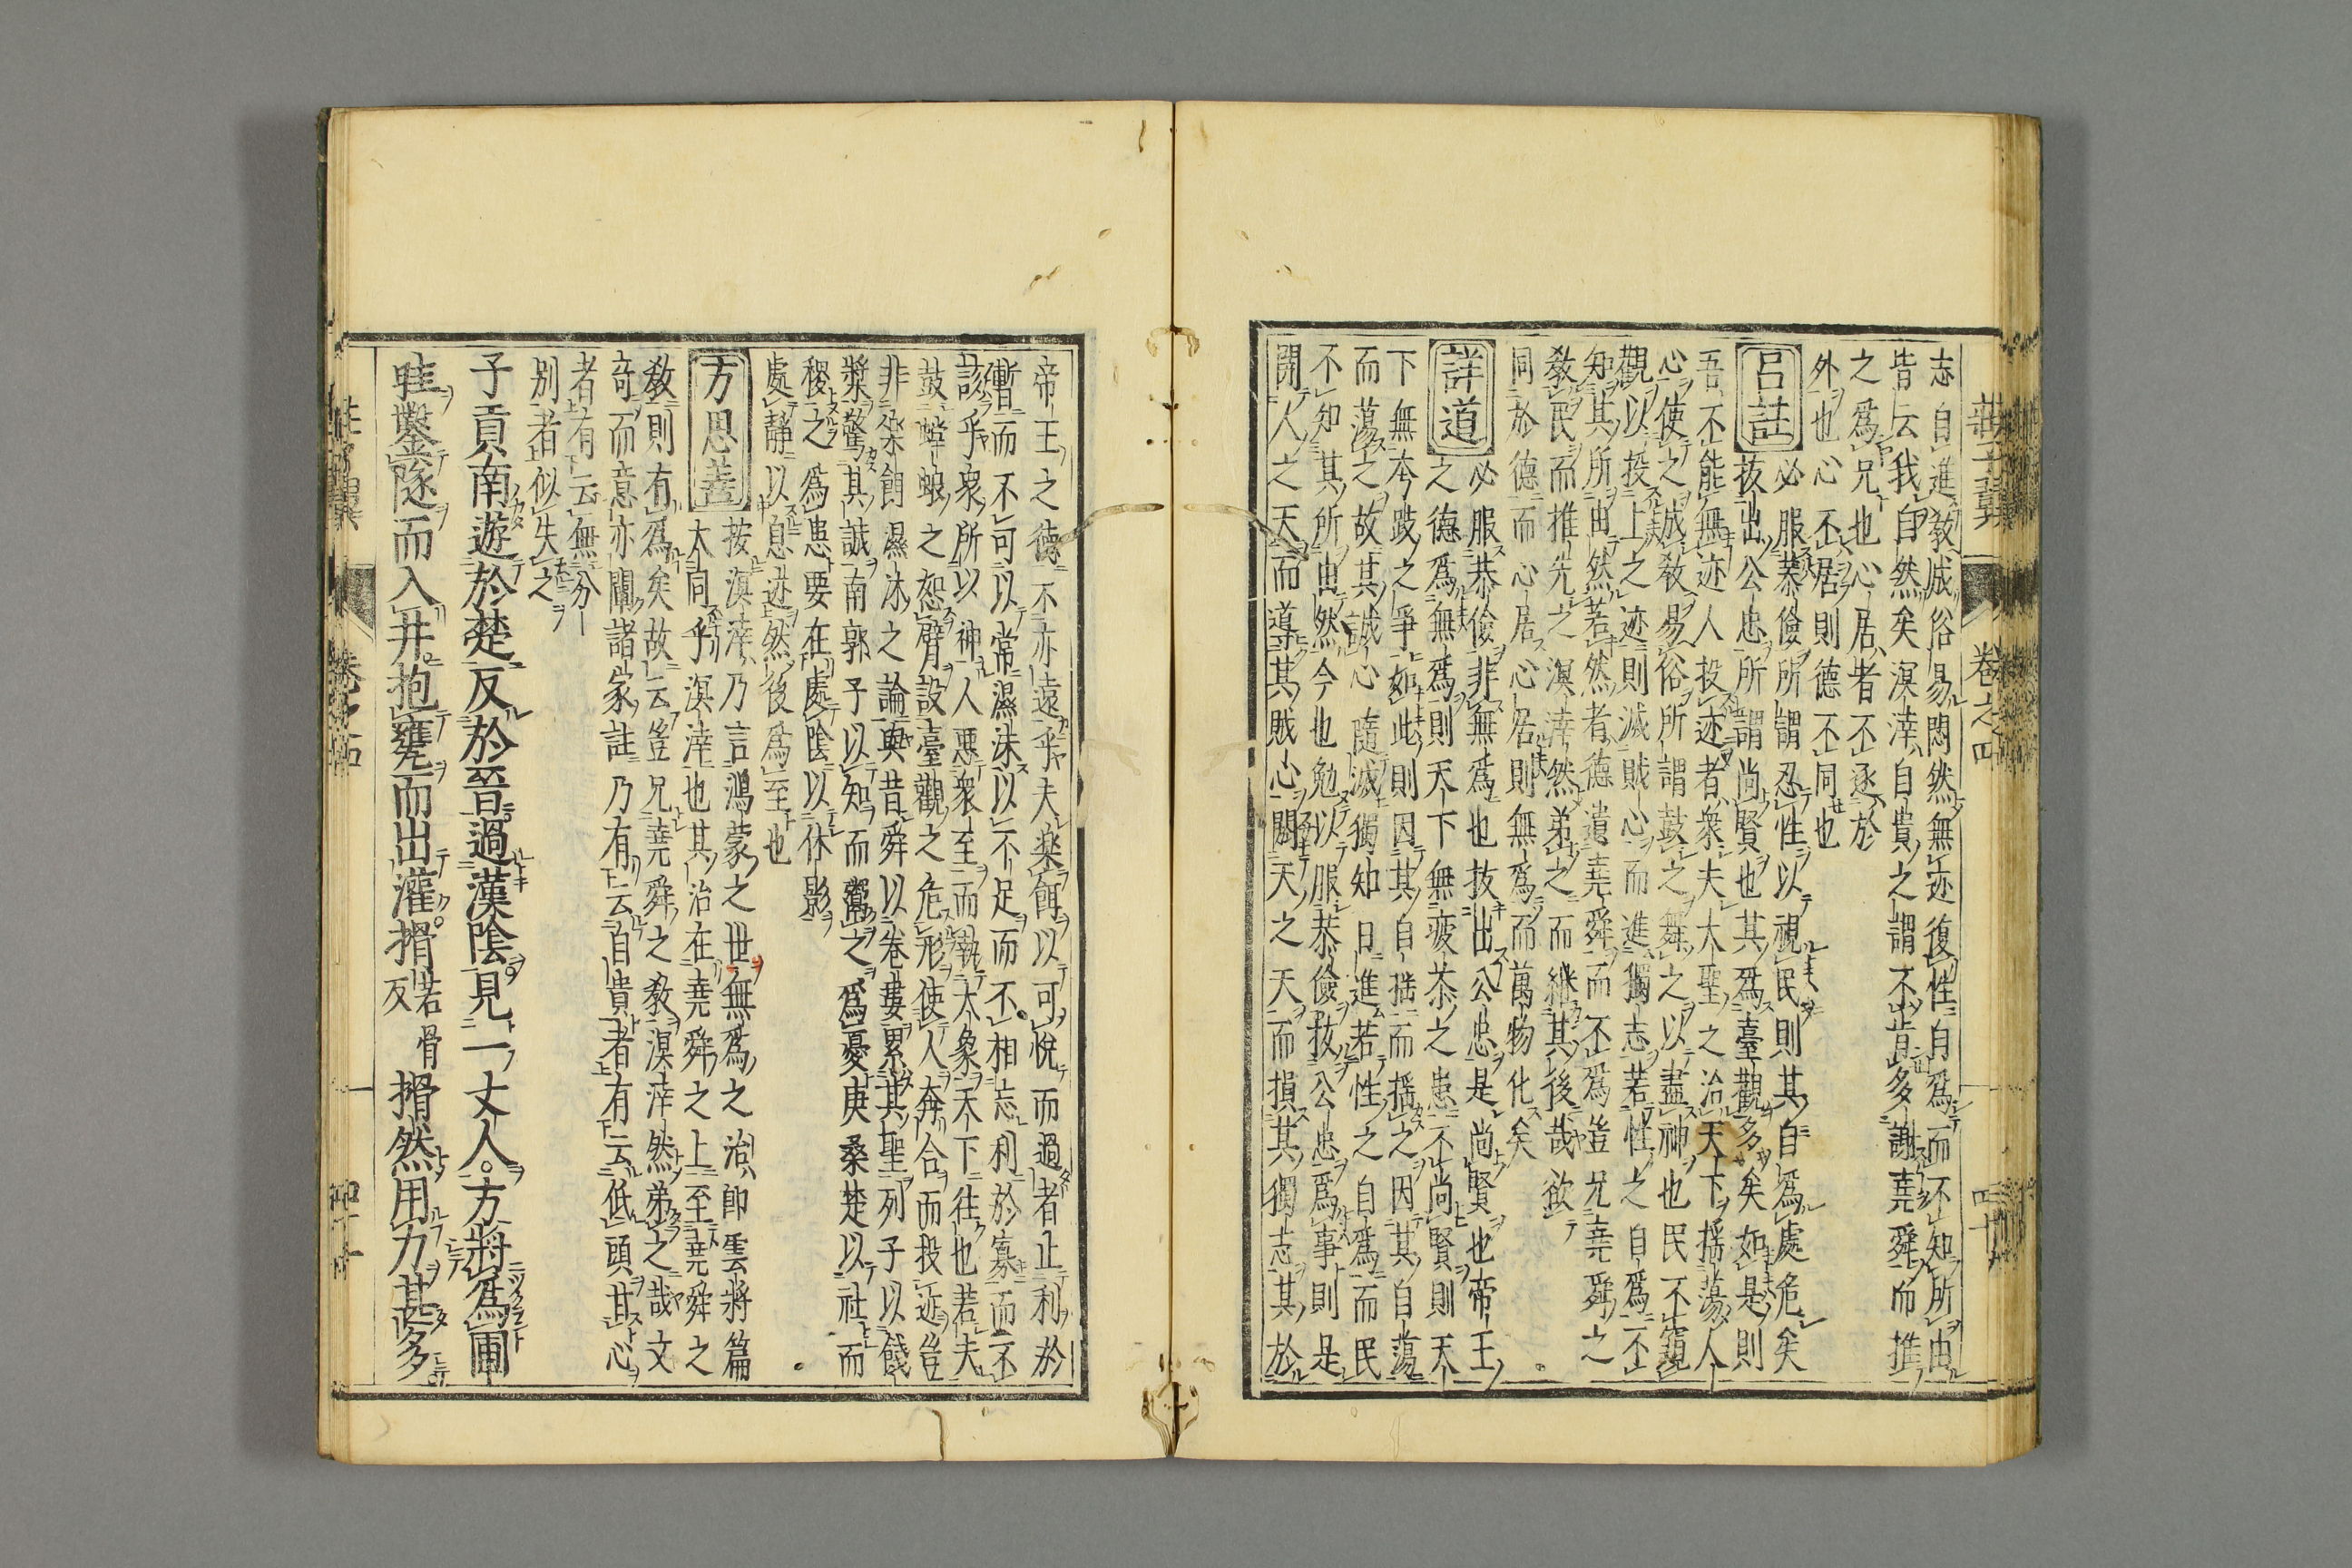 莊子翼 卷之四 四十
志自進教成俗易悶然無迹復性自爲而不知所由
皆云我自然矣溟涬自貴之謂不肯多謝堯舜而推
之爲兄也心居者不逐於
外也心不居則德不同也
呂註
必服恭儉所謂忍性以視民則其自爲處危矣
拔出公忠所謂尚賢也其爲臺觀多矣如是則
吾不能無迹人投迹者衆夫大聖之治天下搖蕩人
心使之成教易俗所謂鼓之舞之以盡神也民不窺
觀以投上之迹則滅賊心而進獨志若性之自爲不
知其所由然若然者德遺堯舜而不爲豈兄堯舜之
教民而推先之溟涬然弟之而繼其後哉欲
同於德而心居心居則無爲而萬物化矣
詳道
必服恭儉非無爲也拔出公忠是尚賢也帝王
之德爲無爲則天下無疲苶之患不尚賢則天
下無夲跂之爭如此則因其自搖而搖之因其自蕩
而蕩之故其誠心隨滅獨知日進若性之自爲而民
不知其所由然今也勉以服恭儉拔公忠爲事則是
開人之天而導其賊心闔天之天而損其獨志其於
帝王之德不亦遠乎夫樂餌以可悅而過者止利於
暫而不可以常濕沫以不足而不相忘利於寡而不
該乎衆所以神人惡衆至而執大象天下往也若夫
鼓螳蜋之怒臂設臺觀之危形使人奔合而投迹豈
非粢餌濕沫之論與昔舜以卷婁累其聖列子以餞
漿驚其誠南郭子以知而鬻之爲憂庚桑楚以社而
稷之爲患要在處陰以休影
處静以息迹然後爲至也
方思善
按溟涬乃言鴻蒙之世無爲之治即雲將篇
大同乎溟涬也其治在堯舜之上至堯舜之
教則有爲矣故云豈兄堯舜之教溟涬然弟之哉文
奇而意亦闡諸家註乃有云自貴者有云低頭甘心
者有云無分
别者似失之
子貢南遊於楚反於晉過漢陰見一丈人方將爲圃
畦鑿隧而入井抱甕而出灌搰若骨反搰然用力甚多